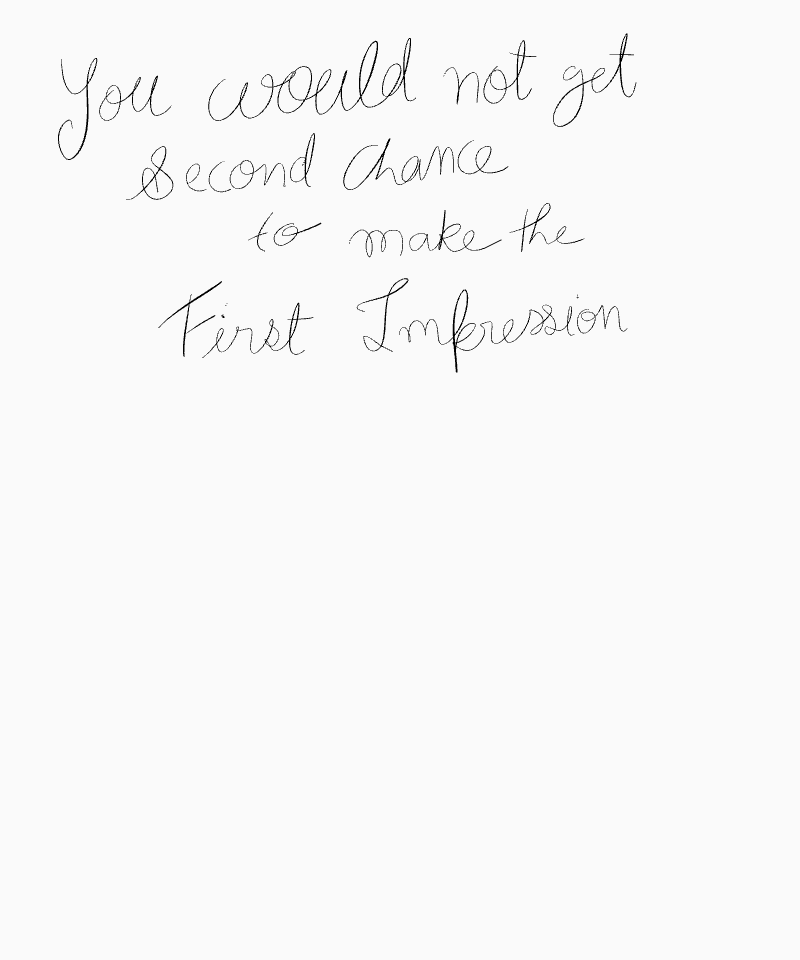 You would not get
second chance
to make the
First Impression